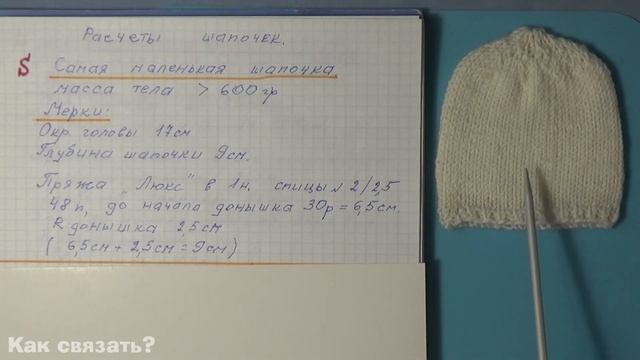 Расчеты шапочек.
S Самая маленькая шапочка
масса тела > 600гр
Мерки:
Окр. головы 17см
Глубина шапочки 9см.
Пряжа „Люкс" в 1н. спицы № 2/2,5
48п, до начала донышка 30р = 6,5см.
R донышка 2,5см
( 6,5см + 2,5см = 9см )
Как связать?